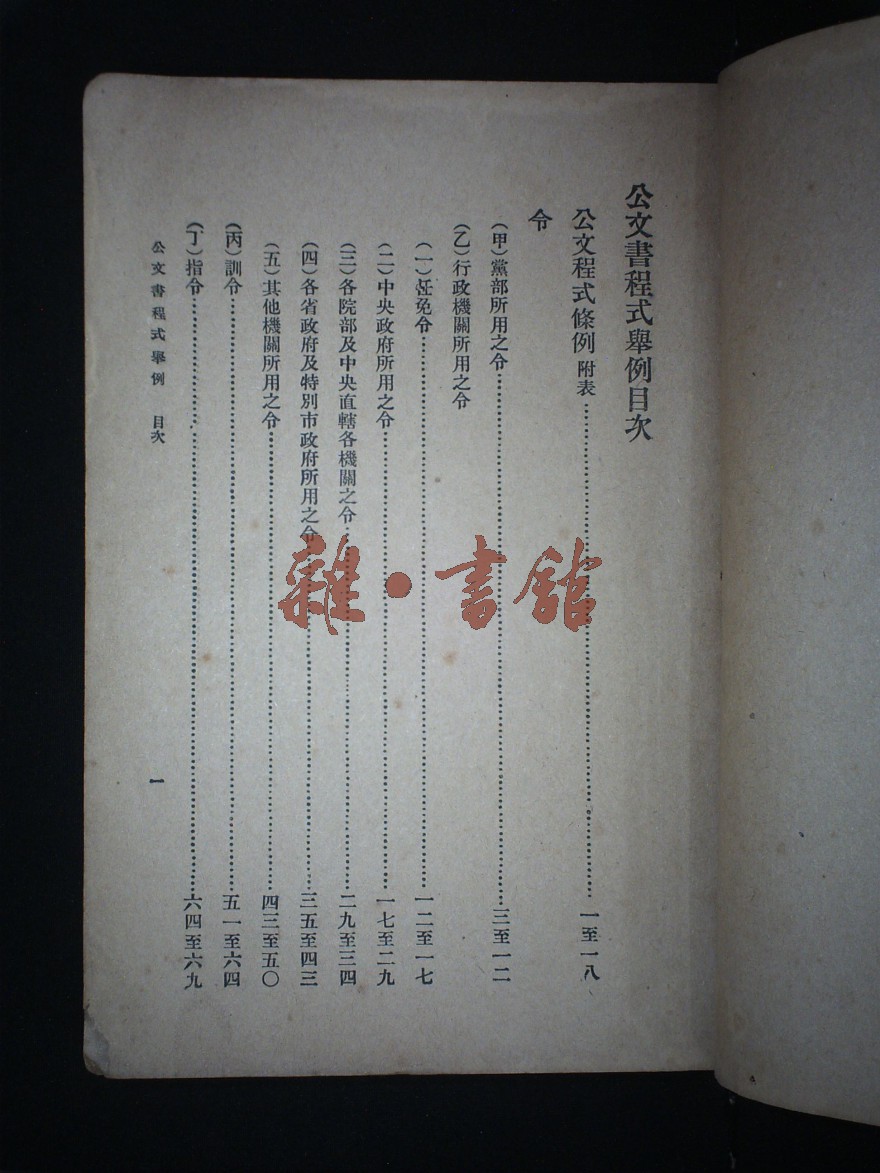 公文書程式舉例目次
公文程式條例 附表…………一至一八
令
(甲)黨部所用之令…………三至一二
(乙)行政機關所用之令
(一)任免令…………一二至一七
(二)中央政府所用之令…………一七至二九
(三)各院部及中央直轄各機關之令…………二九至三四
(四)各省政府及特別市政府所用之令…………三五至四三
(五)其他機關所用之令…………四三至五〇
(丙)訓令…………五一至六四
(丁)指令…………六四至六九
公文書程式舉例 目次 一
雜·書館